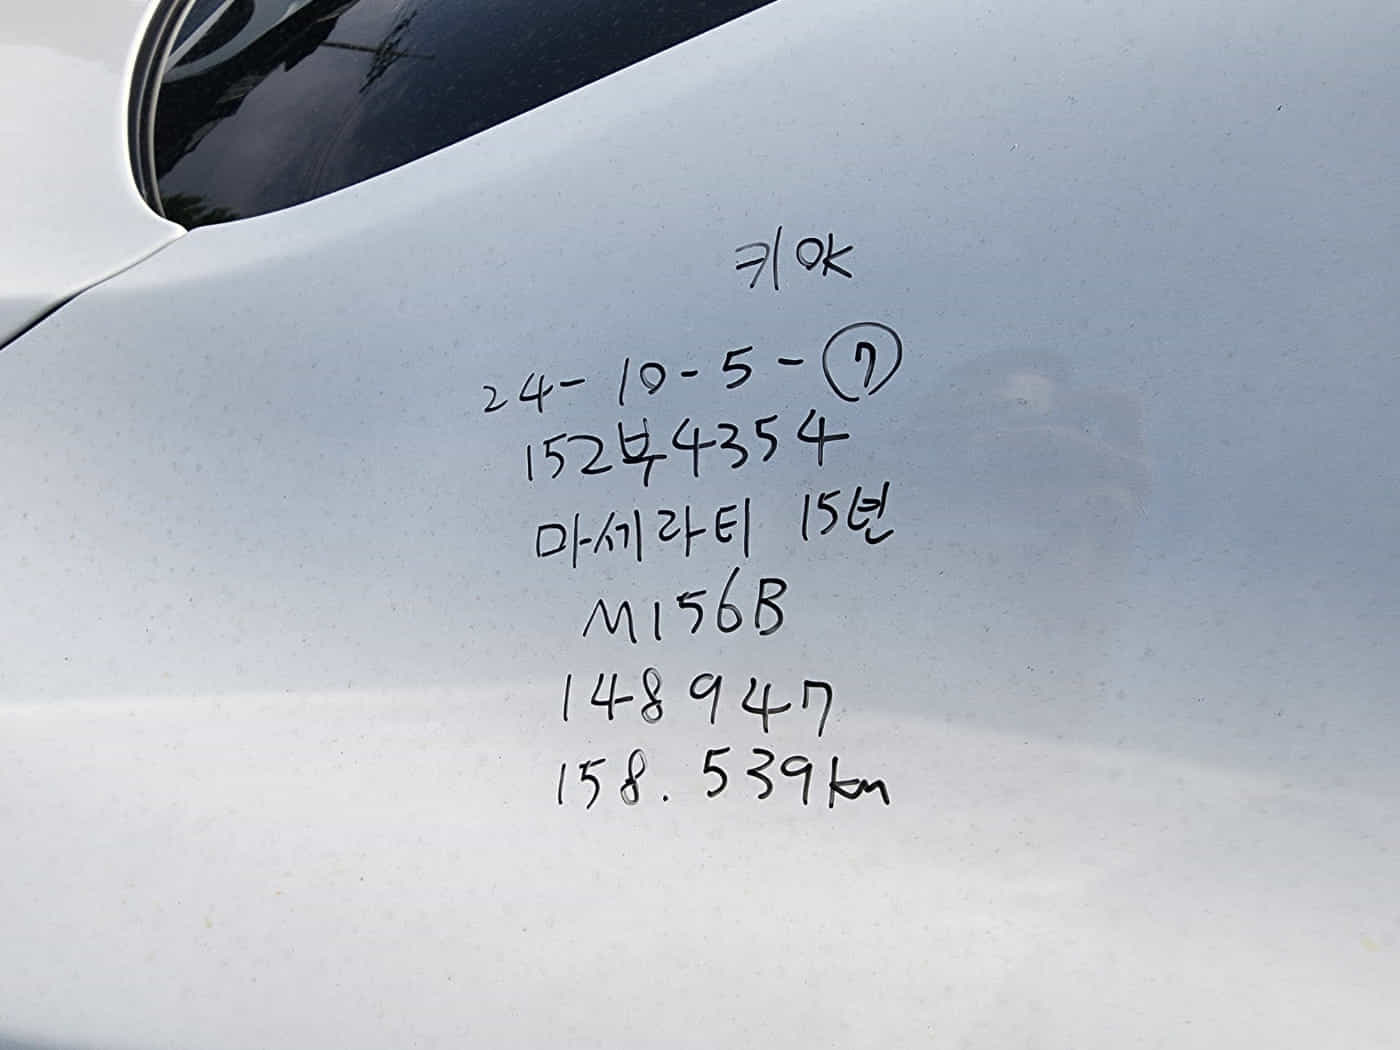 키 OK
24-10-5-⑦
152부4354
마세라티 15년
M156B
148947
158.539km